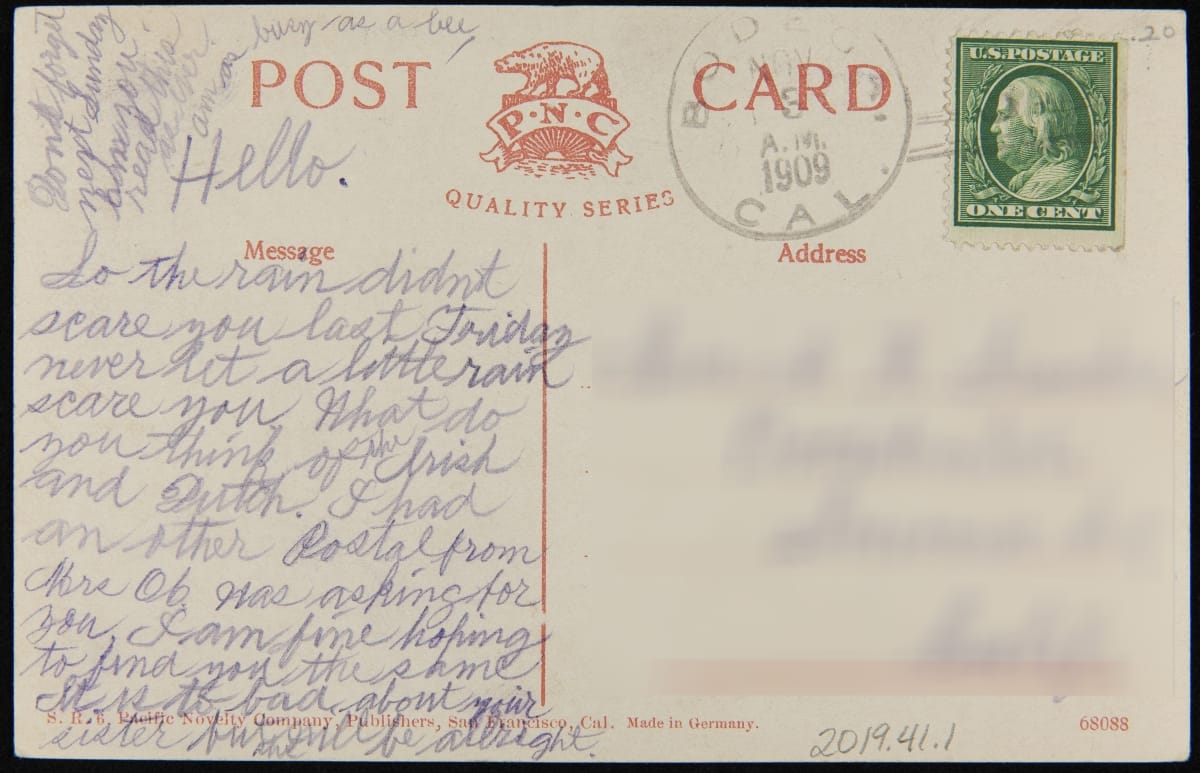 Dont forget
next Sunday
read this
as ever.
am as busy as a bee
POST CARD
P·N·C
QUALITY SERIES
BODEGA
NOV
3
A.M.
1909
CAL.
U.S. POSTAGE
ONE CENT
.20
Hello.
Message
Address
So the rain didnt
scare you last Friday
never let a little rain
scare you. What do
you think of the Irish
and Dutch. I had
an other Postal from
Mrs Ob. was asking for
you. I am fine hoping
to find you the same
It is to bad about your
sister but will be allright.
S. R. 6. Pacific Novelty Company, Publishers, San Francisco, Cal. Made in Germany.
68088
2019.41.1